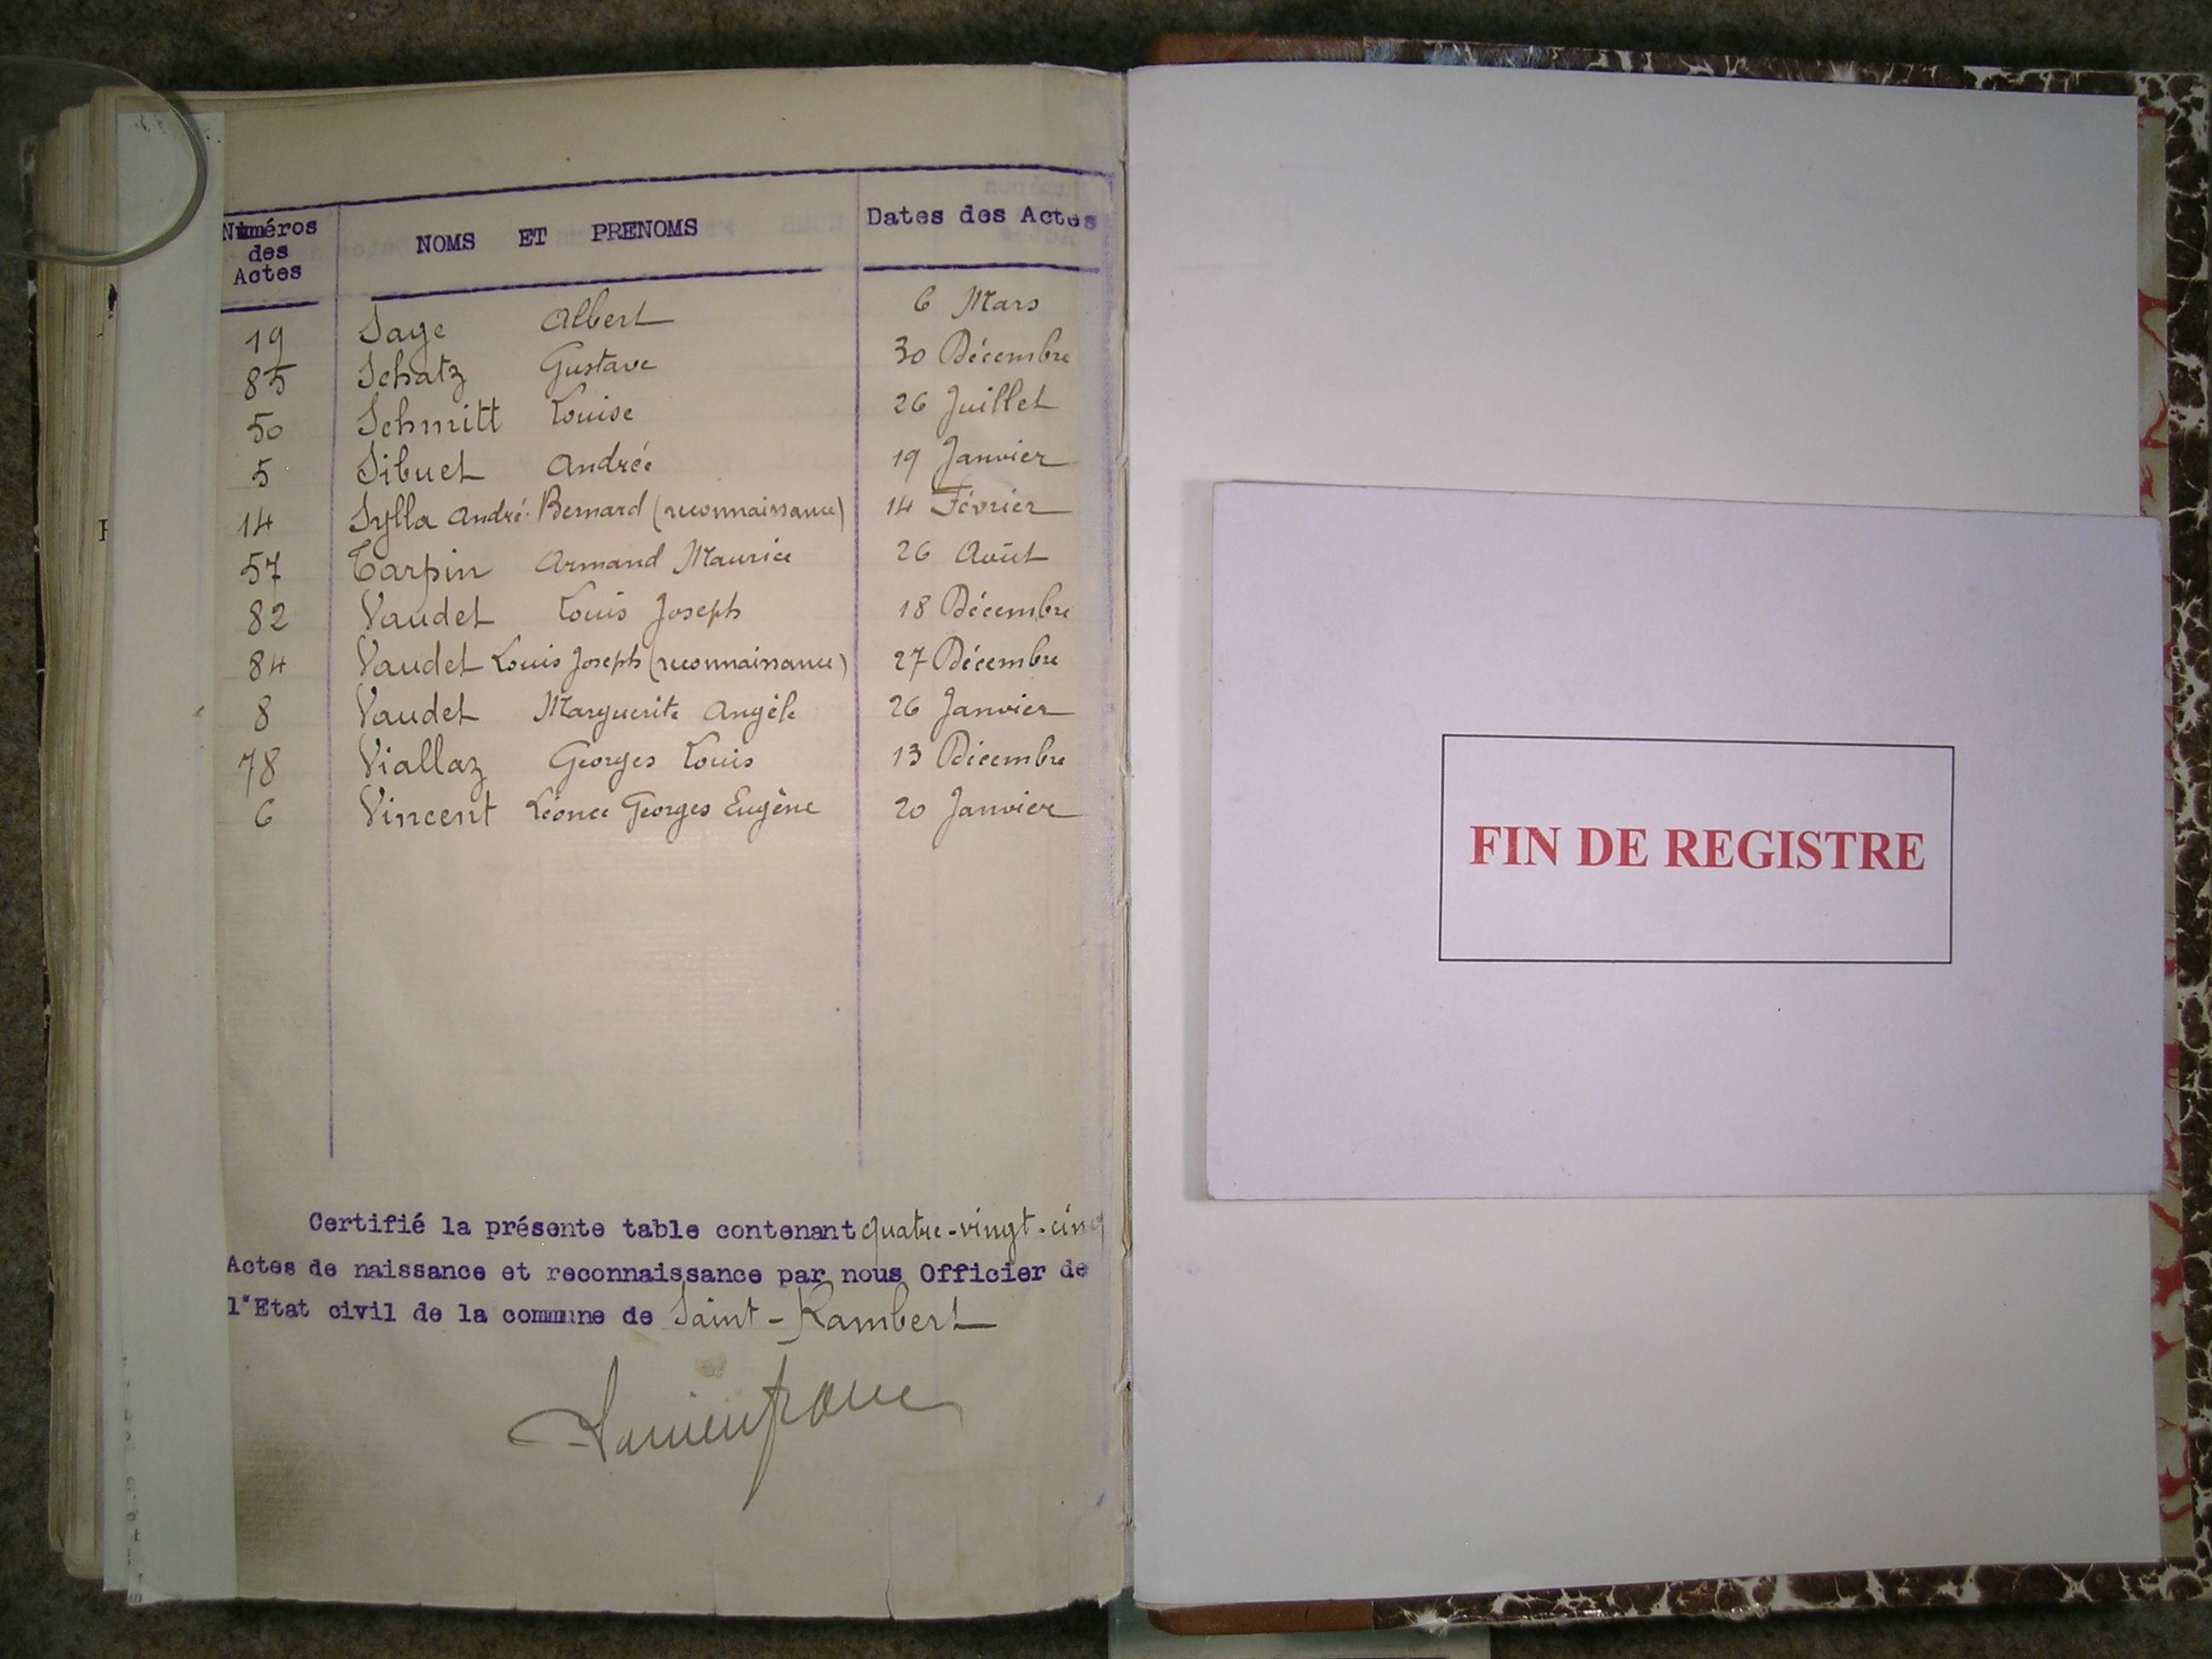 Numéros
des
Actes
NOMS ET PRENOMS
Dates des Actes
19 Saye Albert 6 Mars
85 Schatz Gustave 30 Décembre
50 Schmitt Louise 26 Juillet
5 Sibuet Andrée 19 Janvier
14 Sylla André-Bernard (reconnaissance) 14 Février
57 Tarpin Armand Maurice 26 Août
82 Vaudet Louis Joseph 18 Décembre
84 Vaudet Louis Joseph (reconnaissance) 27 Décembre
8 Vaudet Marguerite Angèle 26 Janvier
78 Viallaz Georges Louis 13 Décembre
6 Vincent Léonce Georges Eugène 20 Janvier
Certifié la présente table contenant quatre-vingt-cinq
Actes de naissance et reconnaissance par nous Officier de
l'Etat civil de la commune de Saint-Rambert
FIN DE REGISTRE